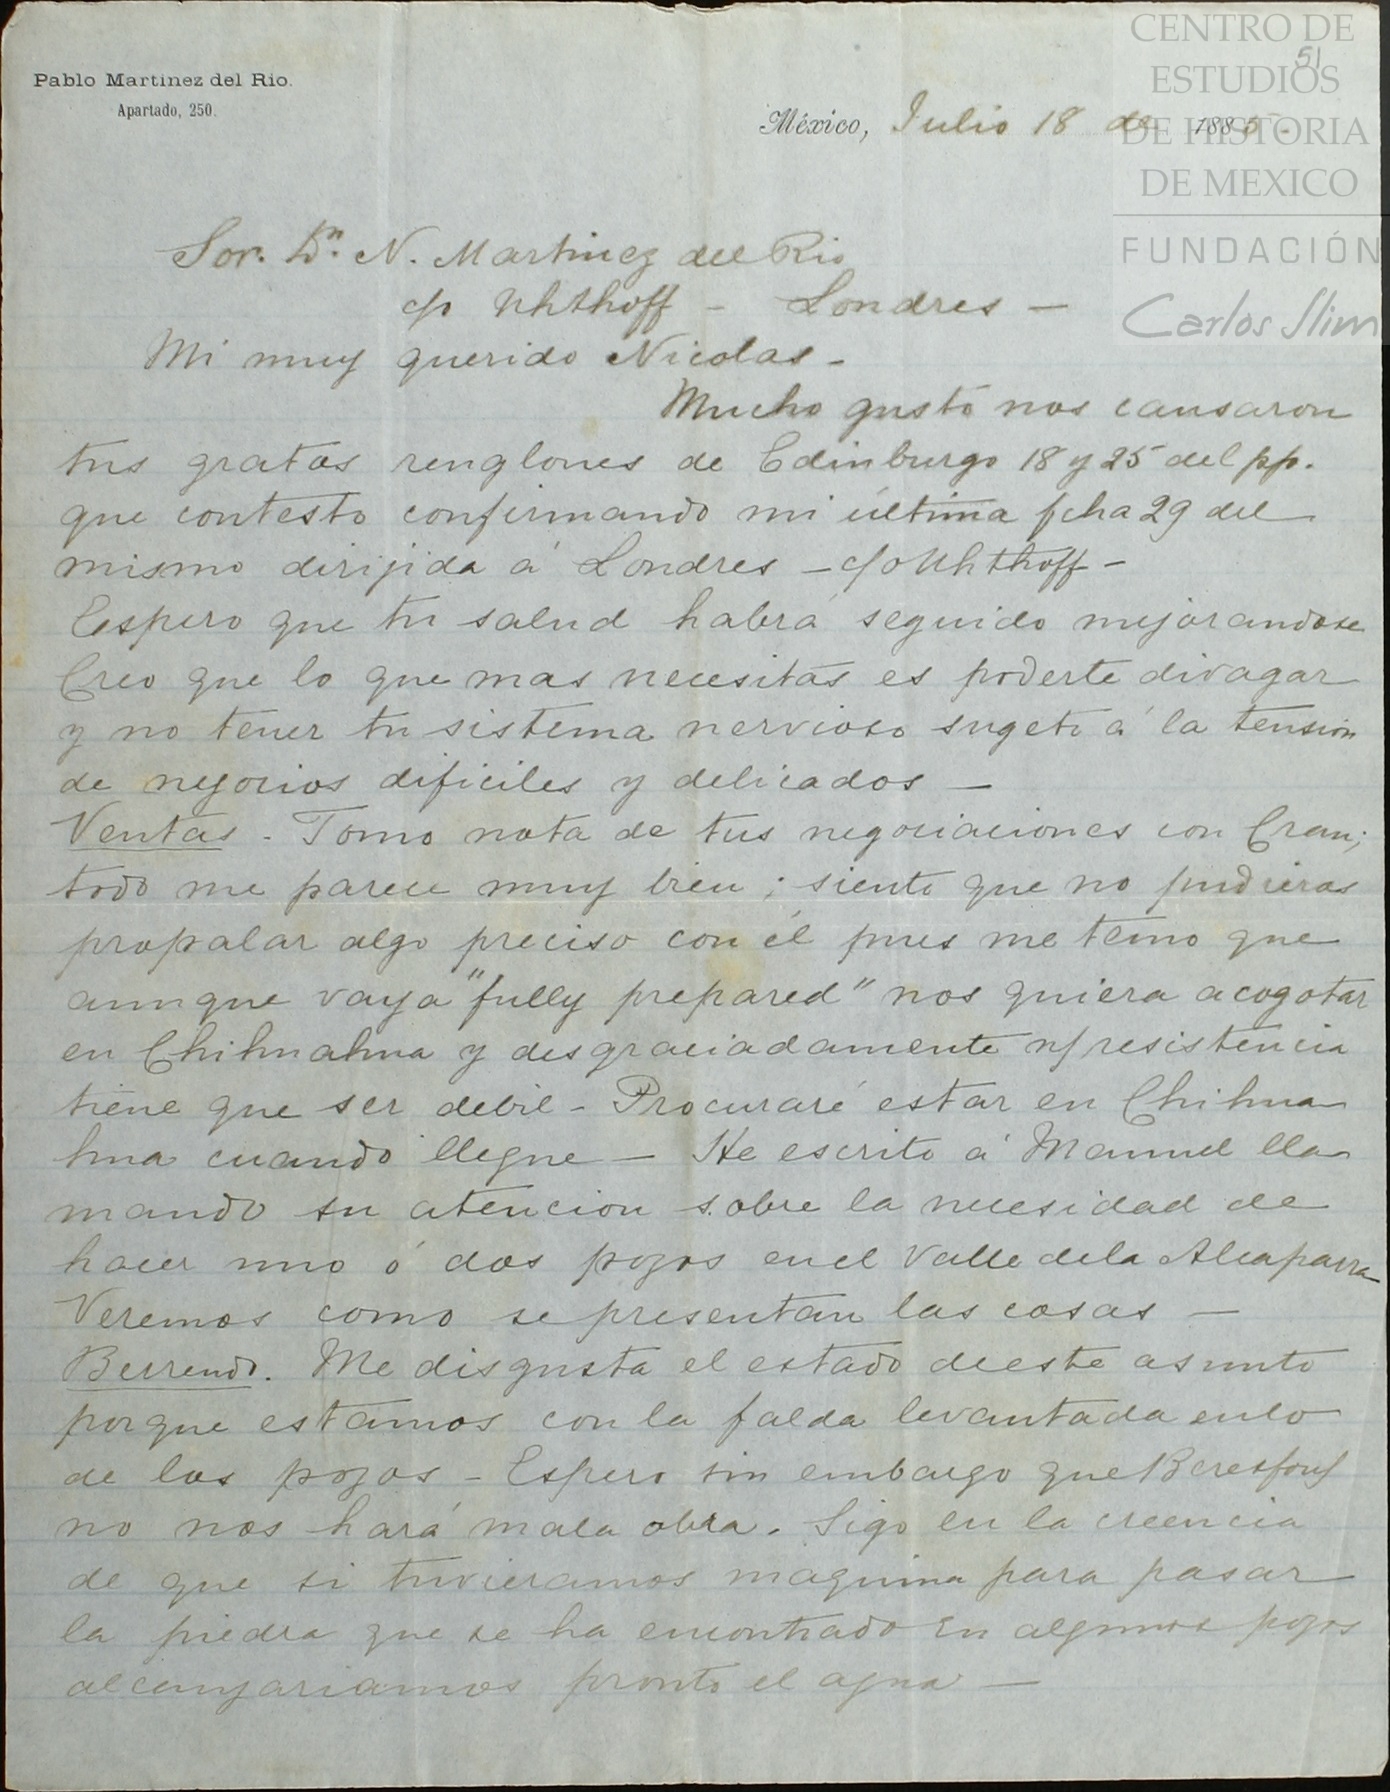 Pablo Martinez del Rio.
Apartado, 250.
CENTRO DE
ESTUDIOS
DE HISTORIA
DE MEXICO
FUNDACIÓN
Carlos Slim
51
México, Julio 18 de 1885.
Sor. Dn. N. Martinez del Rio
c/o Uhthoff - Londres -
Mi muy querido Nicolas -
Mucho gusto nos causaron
tus gratos renglones de Edinburgo 18 y 25 del pp.
que contesto confirmando mi última fcha 29 del
mismo dirijida á Londres - c/o Uhthoff -
Espero que tu salud habrá seguido mejorandose
Creo que lo que mas necesitas es poderte divagar
y no tener tu sistema nervioso sugeto á la tension
de negocios dificiles y delicados -
Ventas - Tomo nota de tus negociaciones con Cran;
todo me parece muy bien ; siento que no pudieras
propalar algo preciso con él pues me temo que
aunque vaya "fully prepared" nos quiera acogotar
en Chihuahua y desgraciadamente n/ resistencia
tiene que ser debil - Procuraré estar en Chihua
hua cuando llegue - He escrito á Manuel lla
mando su atencion sobre la necesidad de
hacer uno ó dos pozos en el Valle de la Alcaparra
Veremos como se presentan las cosas -
Berrendo. Me disgusta el estado de este asunto
porque estamos con la falda levantada en lo
de los pozos - Espero sin embargo que Beresford
no nos hará mala obra. Sigo en la creencia
de que si tuvieramos maquina para pasar
la piedra que se ha encontrado en algunos pozos
alcanzariamos pronto el agua -